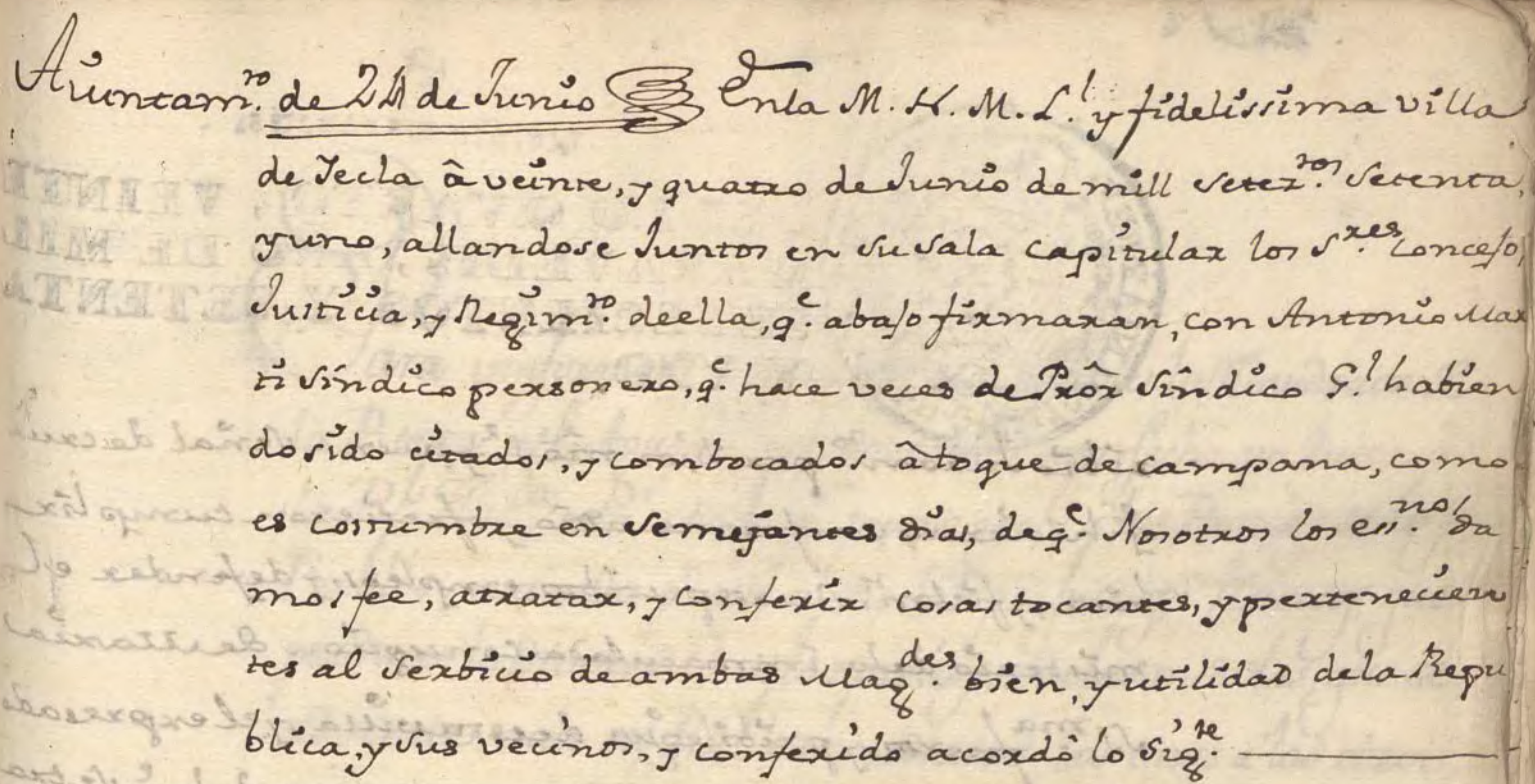 Aiuntam.to de 24 de Junio En la M. N. M. L.l y fidelissima villa
de Jecla â veinte, y quatro de Junio de mill setez.tos setenta,
y uno, allandose Juntos en su sala capitular los S.res Concejo,
Justicia, y Regim.to de ella, q.e abajo firmaran, con Antonio Mar
ti sindico personero, q.e hace veces de Prôr sindico G.l habien
do sido citados, y combocados â toque de campana, como
es costumbre en semejantes dias, de q.e Nosotros los ess.nos da
mos fee, a tratar, y conferir cosas tocantes, y pertenecien
tes al serbicio de ambas Mag.des bien, y utilidad de la Repu
blica, y sus vecinos, y conferido acordô lo sig.te